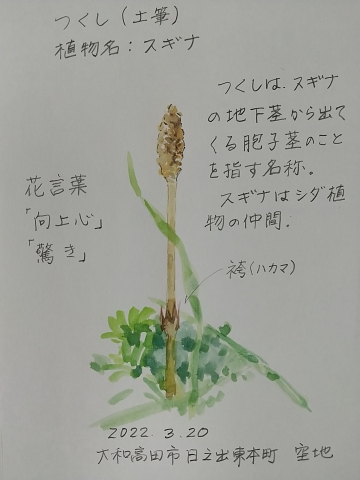 つくし（土筆）
植物名：スギナ
つくしは、スギナ
の地下茎から出て
くる胞子茎のこと
を指す名称。
スギナはシダ植
物の仲間。
花言葉
「向上心」
「驚き」
袴（ハカマ）
2022.3.20
大和高田市日之出東本町 空地